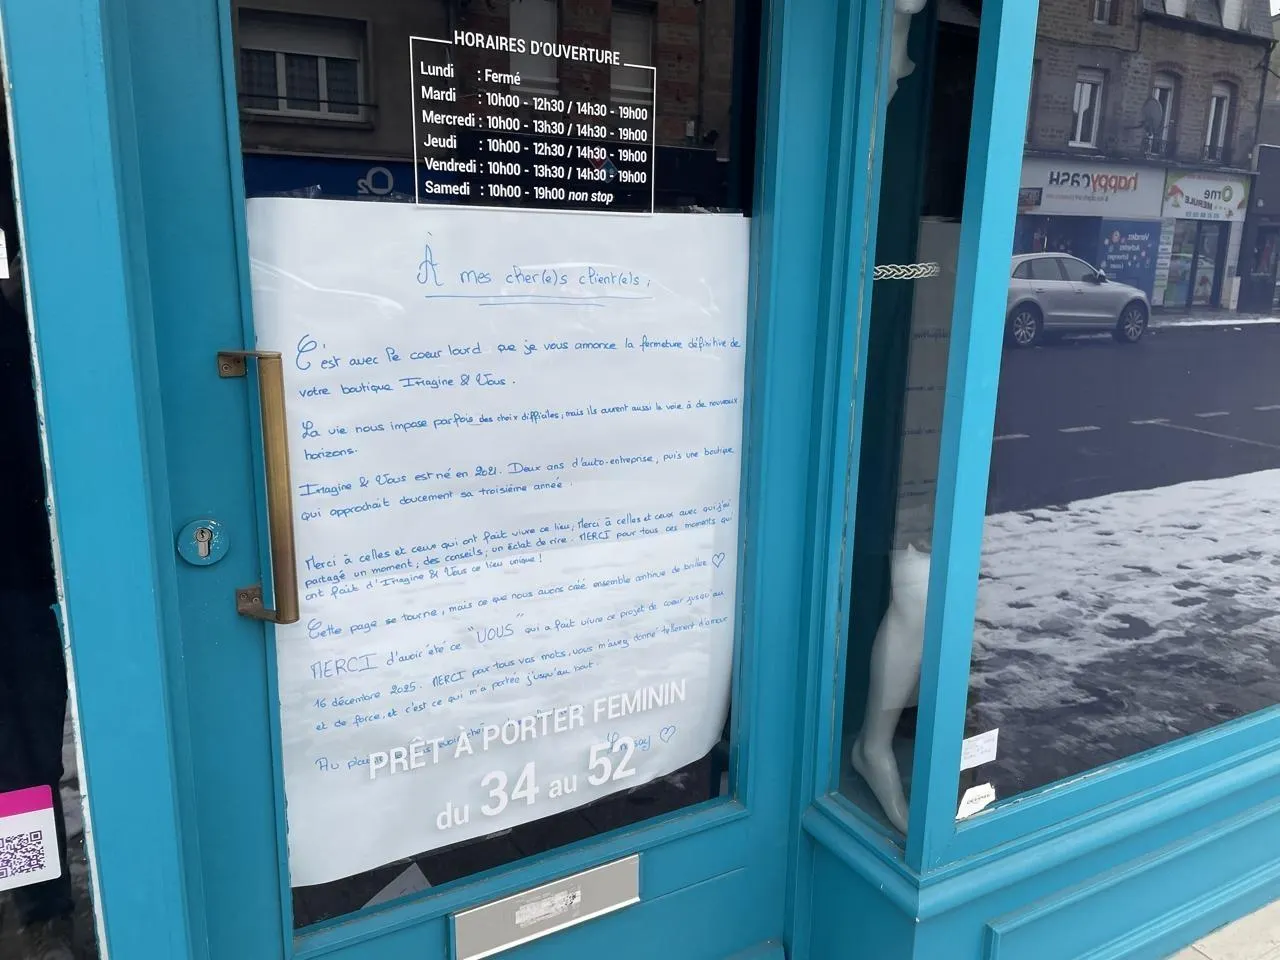 HORAIRES D'OUVERTURE
Lundi : Fermé
Mardi : 10h00 - 12h30 / 14h30 - 19h00
Mercredi : 10h00 - 13h30 / 14h30 - 19h00
Jeudi : 10h00 - 12h30 / 14h30 - 19h00
Vendredi : 10h00 - 13h30 / 14h30 - 19h00
Samedi : 10h00 - 19h00 non stop
À mes cher(e)s client(e)s,
C'est avec le coeur lourd que je vous annonce la fermeture définitive de
votre boutique Imagine & Vous.
La vie nous impose parfois des choix difficiles, mais ils ouvrent aussi la voie à de nouveaux
horizons.
Imagine & Vous est né en 2021. Deux ans d'auto-entreprise, puis une boutique
qui approchait doucement sa troisième année.
Merci à celles et ceux qui ont fait vivre ce lieu, Merci à celles et ceux avec qui j'ai
partagé un moment, des conseils, un éclat de rire. MERCI pour tous ces moments qui
ont fait d'Imagine & Vous ce lieu unique !
Cette page se tourne, mais ce que nous avons créé ensemble continue de briller ♡
MERCI d'avoir été ce "VOUS" qui a fait vivre ce projet de coeur jusqu'au
16 décembre 2025. MERCI pour tous vos mots, vous m'avez donné tellement d'amour
et de force, et c'est ce qui m'a portée jusqu'au bout.
Au
PRÊT À PORTER FEMININ
du 34 au 52
happy cash
Orne
MERULE
O2